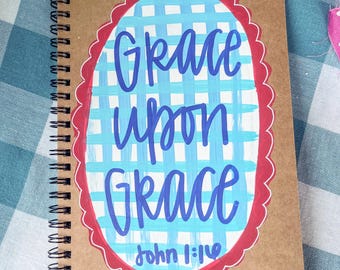 Grace
upon
Grace
John 1:16